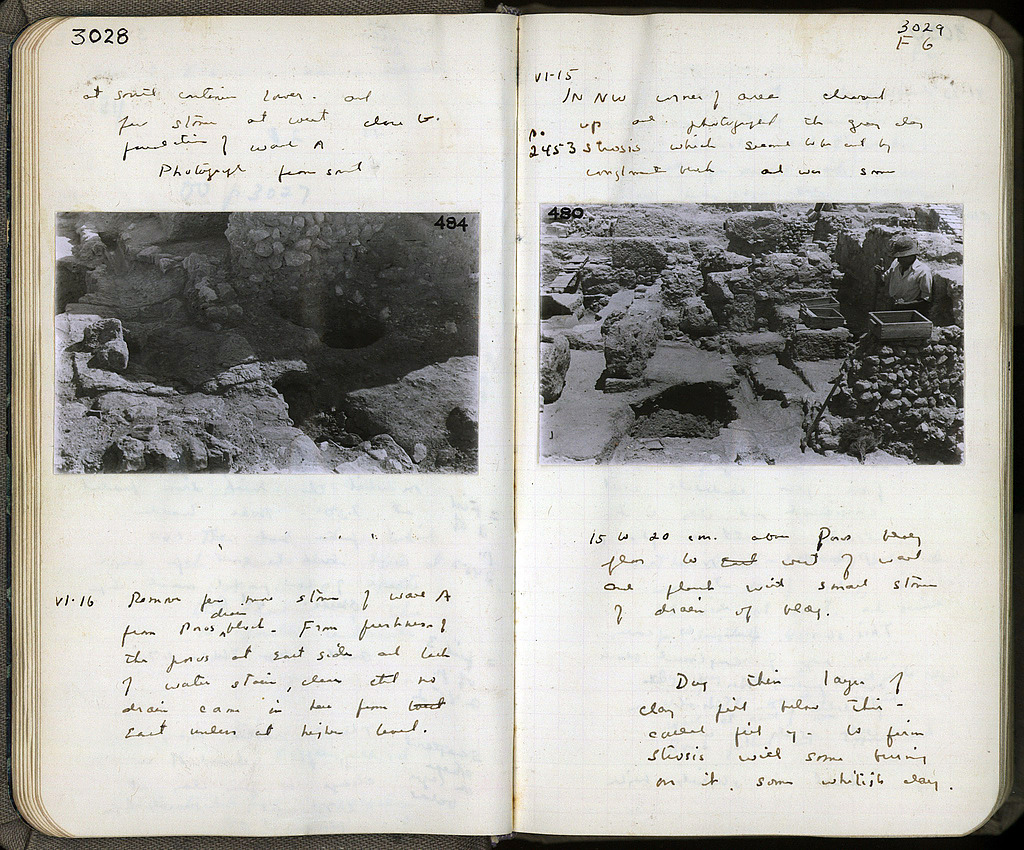 3028
at south continue lower. and
few stones at west close to
foundation of wall A.
Photograph from south
484
VI-16 Remove few more stones of wall A
from Poros drain block. From freshness of
the poros at East side and lack
of water stain, clear that no
drain came in here from west
East unless at higher level.
3029
F 6
VI-15
IN NW corner of area cleaned
up and photographed the gray clay
p. 2453 strosis which seemed to be cut by
conglomerate block and was some
480
15 to 20 cm. above Poros
floor to east west of wall
and flush with small stones
of drain of bldg.
Dug thin layer of
clay fill below this -
called fill y - to firm
strosis with some burning
on it, some whitish clay.